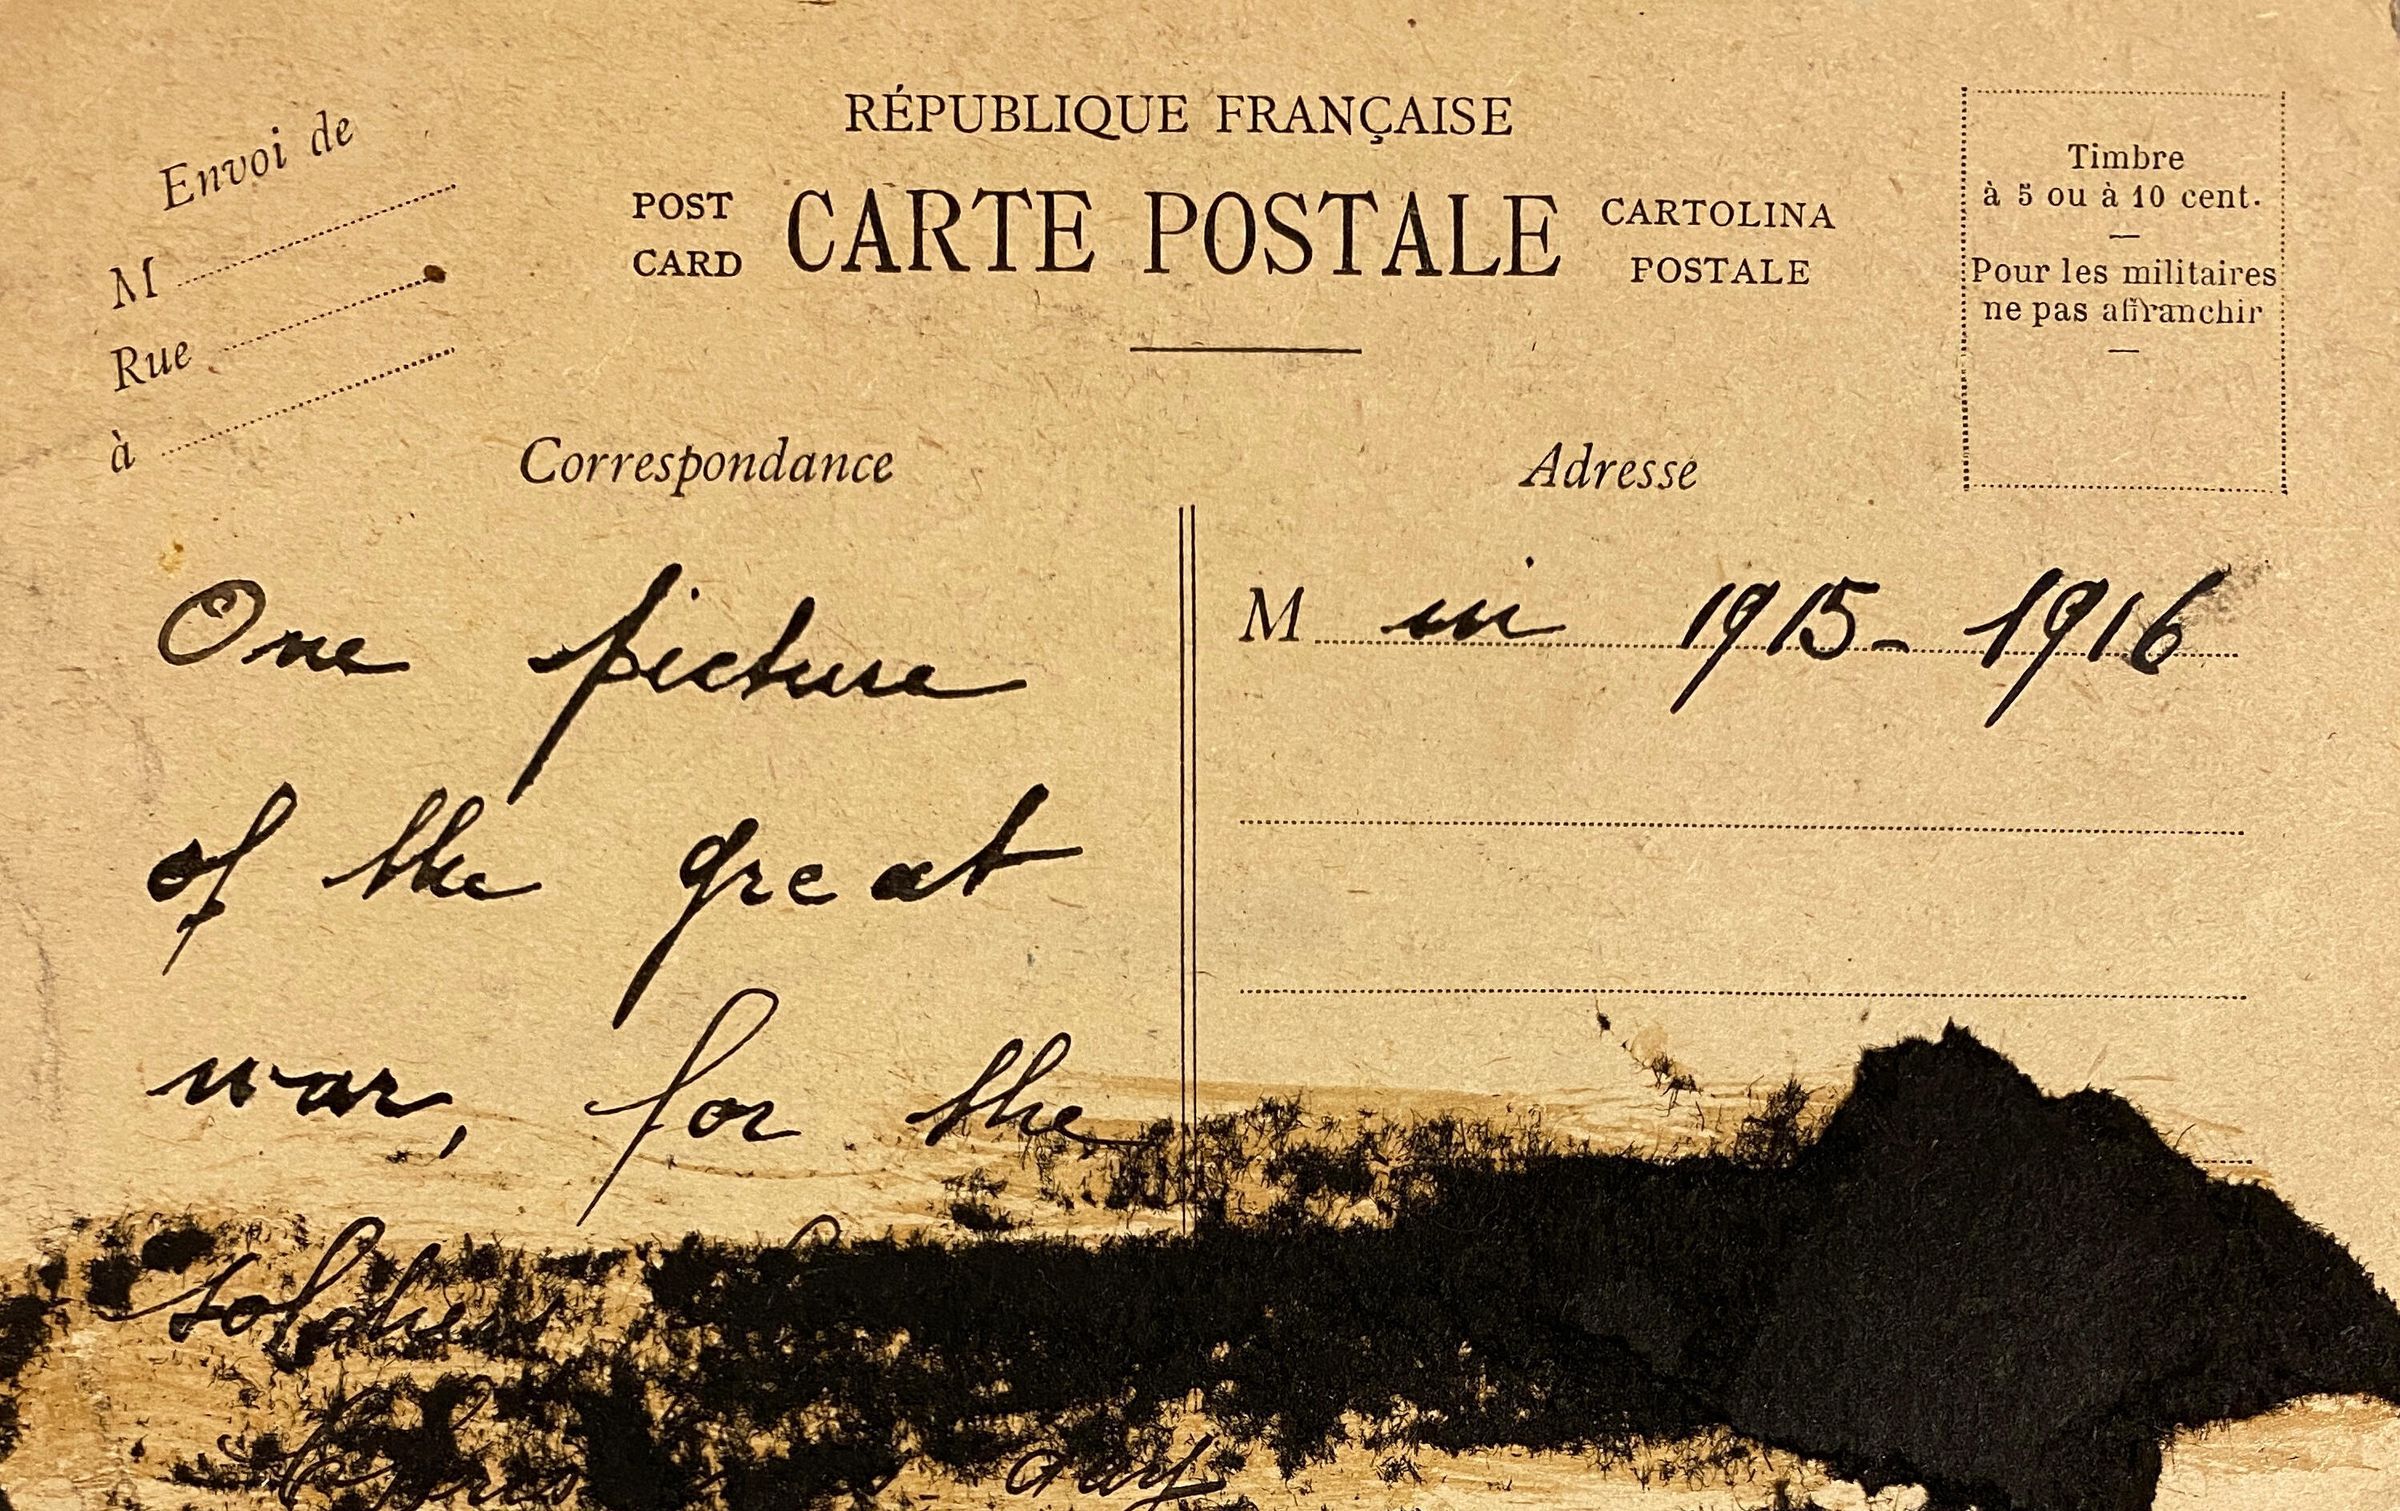 RÉPUBLIQUE FRANÇAISE
POST CARD
CARTE POSTALE
CARTOLINA POSTALE
Envoi de
M
Rue
à
Timbre
à 5 ou à 10 cent.
Pour les militaires
ne pas affranchir
Correspondance
One picture
of the great
war, for the
soldiers
day
Adresse
M in 1915-1916